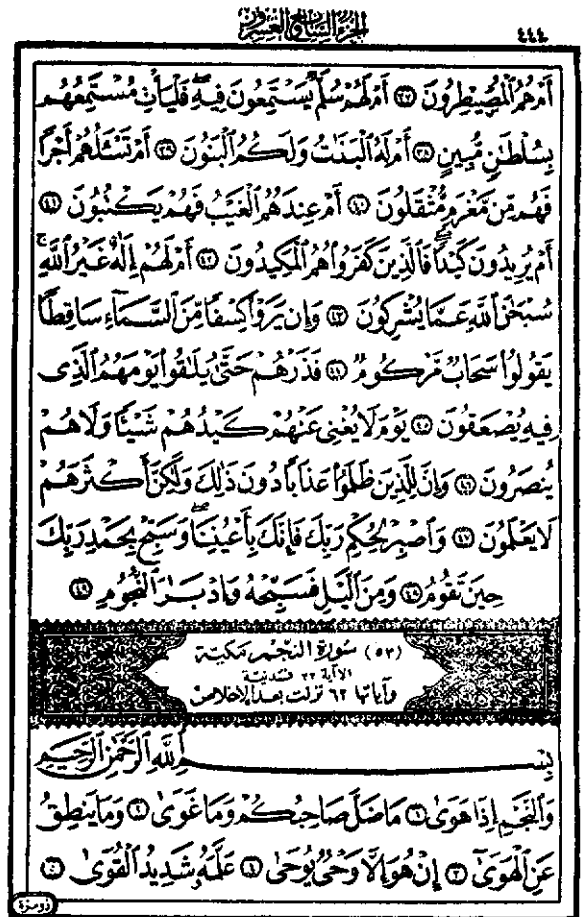 الجزء السابع والعشرون
٤٤٤
أَمْ هُمُ الْمُصَيْطِرُونَ ٣٧ أَمْ لَهُمْ سُلَّمٌ يَسْتَمِعُونَ فِيهِ فَلْيَأْتِ مُسْتَمِعُهُم
بِسُلْطَٰنٍ مُّبِينٍ ٣٨ أَمْ لَهُ الْبَنَٰتُ وَلَكُمُ الْبَنُونَ ٣٩ أَمْ تَسْـَٔلُهُمْ أَجْرًا
فَهُم مِّن مَّغْرَمٍ مُّثْقَلُونَ ٤٠ أَمْ عِندَهُمُ الْغَيْبُ فَهُمْ يَكْتُبُونَ ٤١
أَمْ يُرِيدُونَ كَيْدًا فَالَّذِينَ كَفَرُوا هُمُ الْمَكِيدُونَ ٤٢ أَمْ لَهُمْ إِلَٰهٌ غَيْرُ اللَّهِ
سُبْحَٰنَ اللَّهِ عَمَّا يُشْرِكُونَ ٤٣ وَإِن يَرَوْا كِسْفًا مِّنَ السَّمَآءِ سَاقِطًا
يَقُولُوا سَحَابٌ مَّرْكُومٌ ٤٤ فَذَرْهُمْ حَتَّىٰ يُلَٰقُوا يَوْمَهُمُ الَّذِى
فِيهِ يُصْعَقُونَ ٤٥ يَوْمَ لَا يُغْنِى عَنْهُمْ كَيْدُهُمْ شَيْـًٔا وَلَا هُمْ
يُنصَرُونَ ٤٦ وَإِنَّ لِلَّذِينَ ظَلَمُوا عَذَابًا دُونَ ذَٰلِكَ وَلَٰكِنَّ أَكْثَرَهُمْ
لَا يَعْلَمُونَ ٤٧ وَاصْبِرْ لِحُكْمِ رَبِّكَ فَإِنَّكَ بِأَعْيُنِنَا وَسَبِّحْ بِحَمْدِ رَبِّكَ
حِينَ تَقُومُ ٤٨ وَمِنَ الَّيْلِ فَسَبِّحْهُ وَإِدْبَٰرَ النُّجُومِ ٤٩
(٥٣) سورة النجم مكية
الآية ٣٢ فمدنية
وآياتها ٦٢ نزلت بعد الإخلاص
بِسْمِ اللَّهِ الرَّحْمَٰنِ الرَّحِيمِ
وَالنَّجْمِ إِذَا هَوَىٰ ١ مَا ضَلَّ صَاحِبُكُمْ وَمَا غَوَىٰ ٢ وَمَا يَنطِقُ
عَنِ الْهَوَىٰٓ ٣ إِنْ هُوَ إِلَّا وَحْىٌ يُوحَىٰ ٤ عَلَّمَهُۥ شَدِيدُ الْقُوَىٰ ٥
ذو مرة